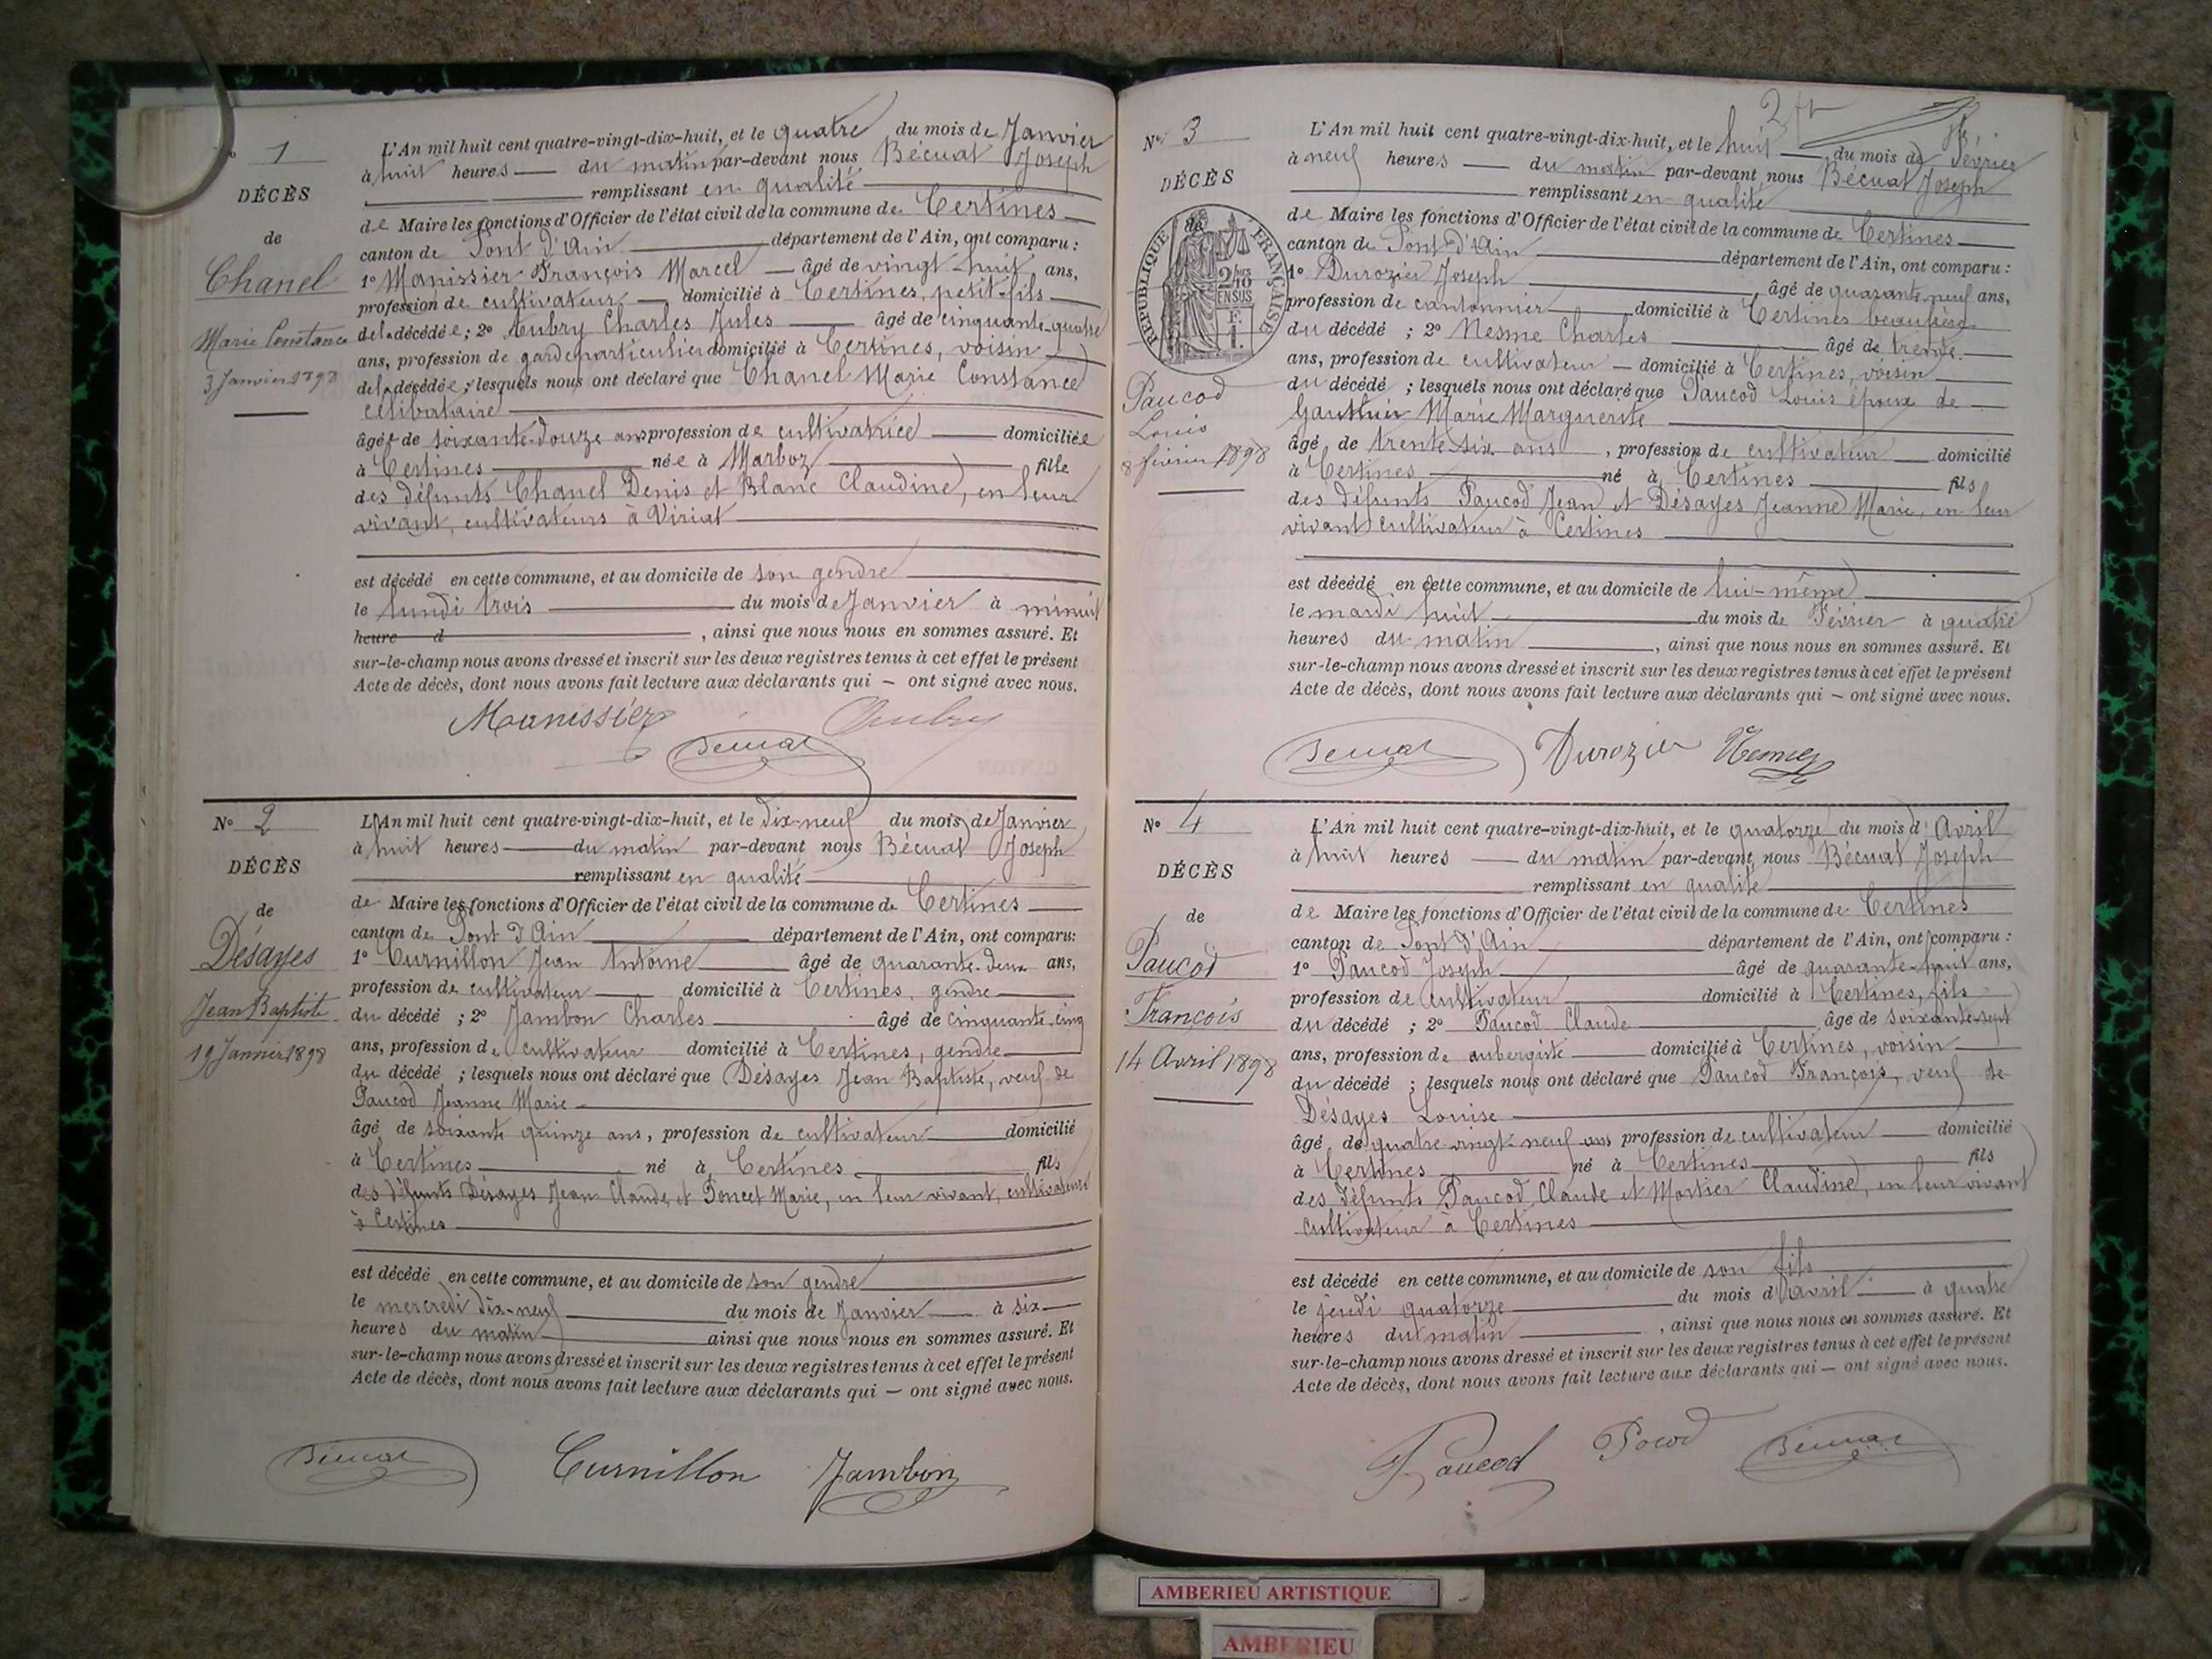 N° 1
DÉCÈS
de
Chanel
Marie Constance
3 Janvier 1898
L'An mil huit cent quatre-vingt-dix-huit, et le quatre du mois de Janvier
à huit heures du matin par-devant nous Bécuat Joseph
remplissant en qualité
de Maire les fonctions d'Officier de l'état civil de la commune de Certines
canton de Pont d'Ain département de l'Ain, ont comparu :
1° Manissier François Marcel âgé de vingt-huit ans,
profession de cultivateur domicilié à Certines, petit-fils
de la décédée ; 2° Aubry Charles Jules âgé de cinquante-quatre
ans, profession de garde particulier domicilié à Certines, voisin
de la décédée ; lesquels nous ont déclaré que Chanel Marie Constance
célibataire
âgée de soixante-douze ans profession de cultivatrice domiciliée
à Certines née à Marboz fille
des défunts Chanel Denis et Blanc Claudine, en leur
vivant, cultivateurs à Viriat
est décédé en cette commune, et au domicile de son gendre
le lundi trois du mois de Janvier à minuit
heure d , ainsi que nous nous en sommes assuré. Et
sur-le-champ nous avons dressé et inscrit sur les deux registres tenus à cet effet le présent
Acte de décès, dont nous avons fait lecture aux déclarants qui — ont signé avec nous.
Manissier Aubry
Bécuat
N° 2
DÉCÈS
de
Désayes
Jean Baptiste
19 Janvier 1898
L'An mil huit cent quatre-vingt-dix-huit, et le dix-neuf du mois de Janvier
à huit heures du matin par-devant nous Bécuat Joseph
remplissant en qualité
de Maire les fonctions d'Officier de l'état civil de la commune de Certines
canton de Pont d'Ain département de l'Ain, ont comparu :
1° Curnillon Jean Antoine âgé de quarante-deux ans,
profession de cultivateur domicilié à Certines, gendre
du décédé ; 2° Jambon Charles âgé de cinquante-cinq
ans, profession de cultivateur domicilié à Certines, gendre
du décédé ; lesquels nous ont déclaré que Désayes Jean Baptiste, veuf de
Paucod Jeanne Marie
âgé de soixante quinze ans, profession de cultivateur domicilié
à Certines né à Certines fils
des défunts Désayes Jean Claude et Poncet Marie, en leur vivant, cultivateurs
à Certines
est décédé en cette commune, et au domicile de son gendre
le mercredi dix-neuf du mois de Janvier à six
heures du matin ainsi que nous nous en sommes assuré. Et
sur-le-champ nous avons dressé et inscrit sur les deux registres tenus à cet effet le présent
Acte de décès, dont nous avons fait lecture aux déclarants qui — ont signé avec nous.
Bécuat Curnillon Jambon
N° 3
DÉCÈS
de
RÉPUBLIQUE FRANÇAISE
2/10
EN SUS
F.
1.
Paucod
Louis
8 février 1898
L'An mil huit cent quatre-vingt-dix-huit, et le huit du mois de Février
à neuf heures du matin par-devant nous Bécuat Joseph
remplissant en qualité
de Maire les fonctions d'Officier de l'état civil de la commune de Certines
canton de Pont d'Ain département de l'Ain, ont comparu :
1° Durozier Joseph âgé de quarante-neuf ans,
profession de cantonnier domicilié à Certines beau-père
du décédé ; 2° Nesme Charles âgé de trente
ans, profession de cultivateur domicilié à Certines, voisin
du décédé ; lesquels nous ont déclaré que Paucod Louis époux de
Gauthier Marie Marguerite
âgé de trente-six ans , profession de cultivateur domicilié
à Certines né à Certines fils
des défunts Paucod Jean et Désayes Jeanne Marie, en leur
vivant cultivateur à Certines
est décédé en cette commune, et au domicile de lui-même
le mardi huit du mois de Février à quatre
heures du matin , ainsi que nous nous en sommes assuré. Et
sur-le-champ nous avons dressé et inscrit sur les deux registres tenus à cet effet le présent
Acte de décès, dont nous avons fait lecture aux déclarants qui — ont signé avec nous.
Bécuat Durozier Nesme
N° 4
DÉCÈS
de
Paucod
François
14 Avril 1898
L'An mil huit cent quatre-vingt-dix-huit, et le quatorze du mois d'Avril
à huit heures du matin par-devant nous Bécuat Joseph
remplissant en qualité
de Maire les fonctions d'Officier de l'état civil de la commune de Certines
canton de Pont d'Ain département de l'Ain, ont comparu :
1° Paucod Joseph âgé de quarante-huit ans,
profession de cultivateur domicilié à Certines, fils
du décédé ; 2° Paucod Claude âgé de soixante-sept
ans, profession de aubergiste domicilié à Certines, voisin
du décédé ; lesquels nous ont déclaré que Paucod François, veuf de
Désayes Louise
âgé de quatre vingt-neuf ans profession de cultivateur domicilié
à Certines né à Certines fils
des défunts Paucod Claude et Mortier Claudine, en leur vivant
cultivateur à Certines
est décédé en cette commune, et au domicile de son fils
le jeudi quatorze du mois d'avril à quatre
heures du matin , ainsi que nous nous en sommes assuré. Et
sur-le-champ nous avons dressé et inscrit sur les deux registres tenus à cet effet le présent
Acte de décès, dont nous avons fait lecture aux déclarants qui — ont signé avec nous.
Paucod Pocod Bécuat
AMBERIEU ARTISTIQUE
AMBERIEU